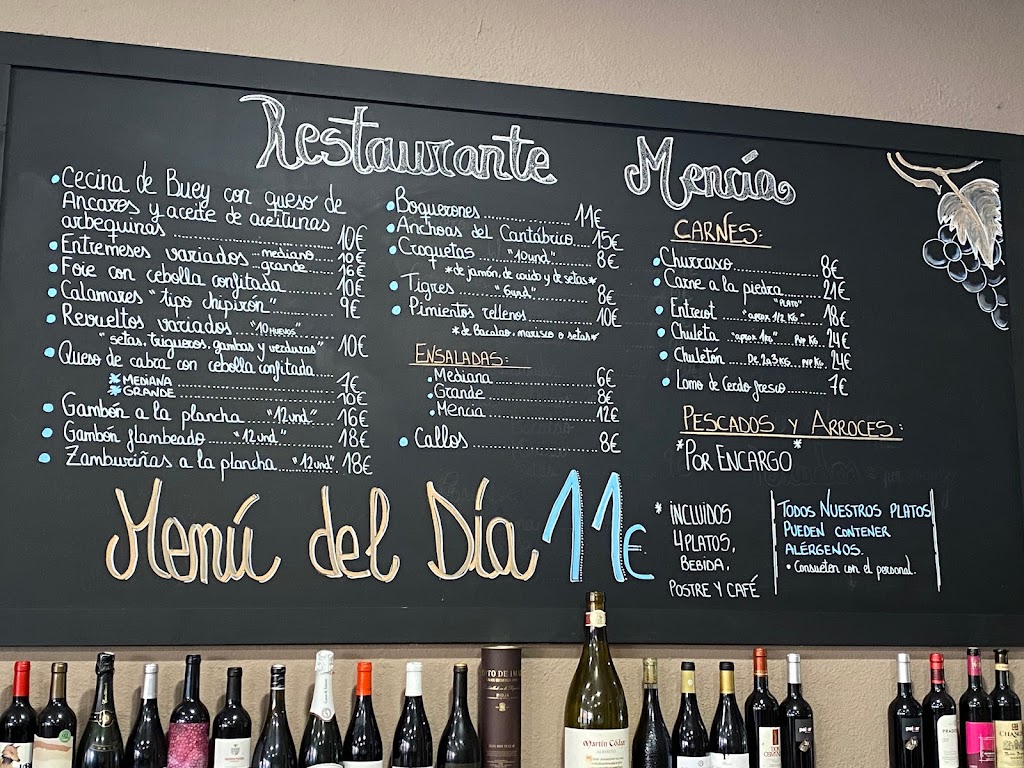 Restaurante Mencía
• Cecina de Buey con queso de
Ancares y aceite de aceitunas
arbequinas ........ 10€
• Entremeses variados mediano ... 10€
grande ... 16€
• Foie con cebolla confitada ........ 10€
• Calamares "tipo chipirón" ........ 9€
• Revueltos variados ... "10 HUEVOS"
"setas, trigueros, gambas y verduras" 10€
Queso de cabra con cebolla confitada......
* MEDIANA ........ 7€
* GRANDE ........ 10€
• Gambón a la plancha ... "12 und." 16€
• Gambón flambeado ... "12 und" ... 18€
• Zamburiñas a la plancha ... "12 und" ... 18€
• Boquerones ........ 11€
• Anchoas del Cantábrico .... 15€
• Croquetas ... "10 und" ... 8€
*de jamón, de cocido y de setas*
• Tigres ... "6 und" ... 8€
• Pimientos rellenos ........ 10€
*de Bacalao, marisco o setas*
ENSALADAS:
• Mediana ........ 6€
• Grande ........ 8€
• Mencía ........ 12€
• Callos ........ 8€
CARNES:
• Churrasco ........ 8€
• Carne a la piedra ........ 21€
"PLATO"
• Entrecot ... "aprox 1/2 KG" ... 18€
• Chuleta "aprox 1kg" ... PVP KG. 24€
• Chuletón ... De 2a3 KG ... PVP KG. 24€
• Lomo de Cerdo fresco ...... 7€
PESCADOS Y ARROCES:
*POR ENCARGO*
Menú del Día 11€
* INCLUIDOS
4 PLATOS,
BEBIDA,
POSTRE Y CAFÉ
TODOS NUESTROS PLATOS
PUEDEN CONTENER
ALÉRGENOS.
• Consulten con el personal.
Martín Códax